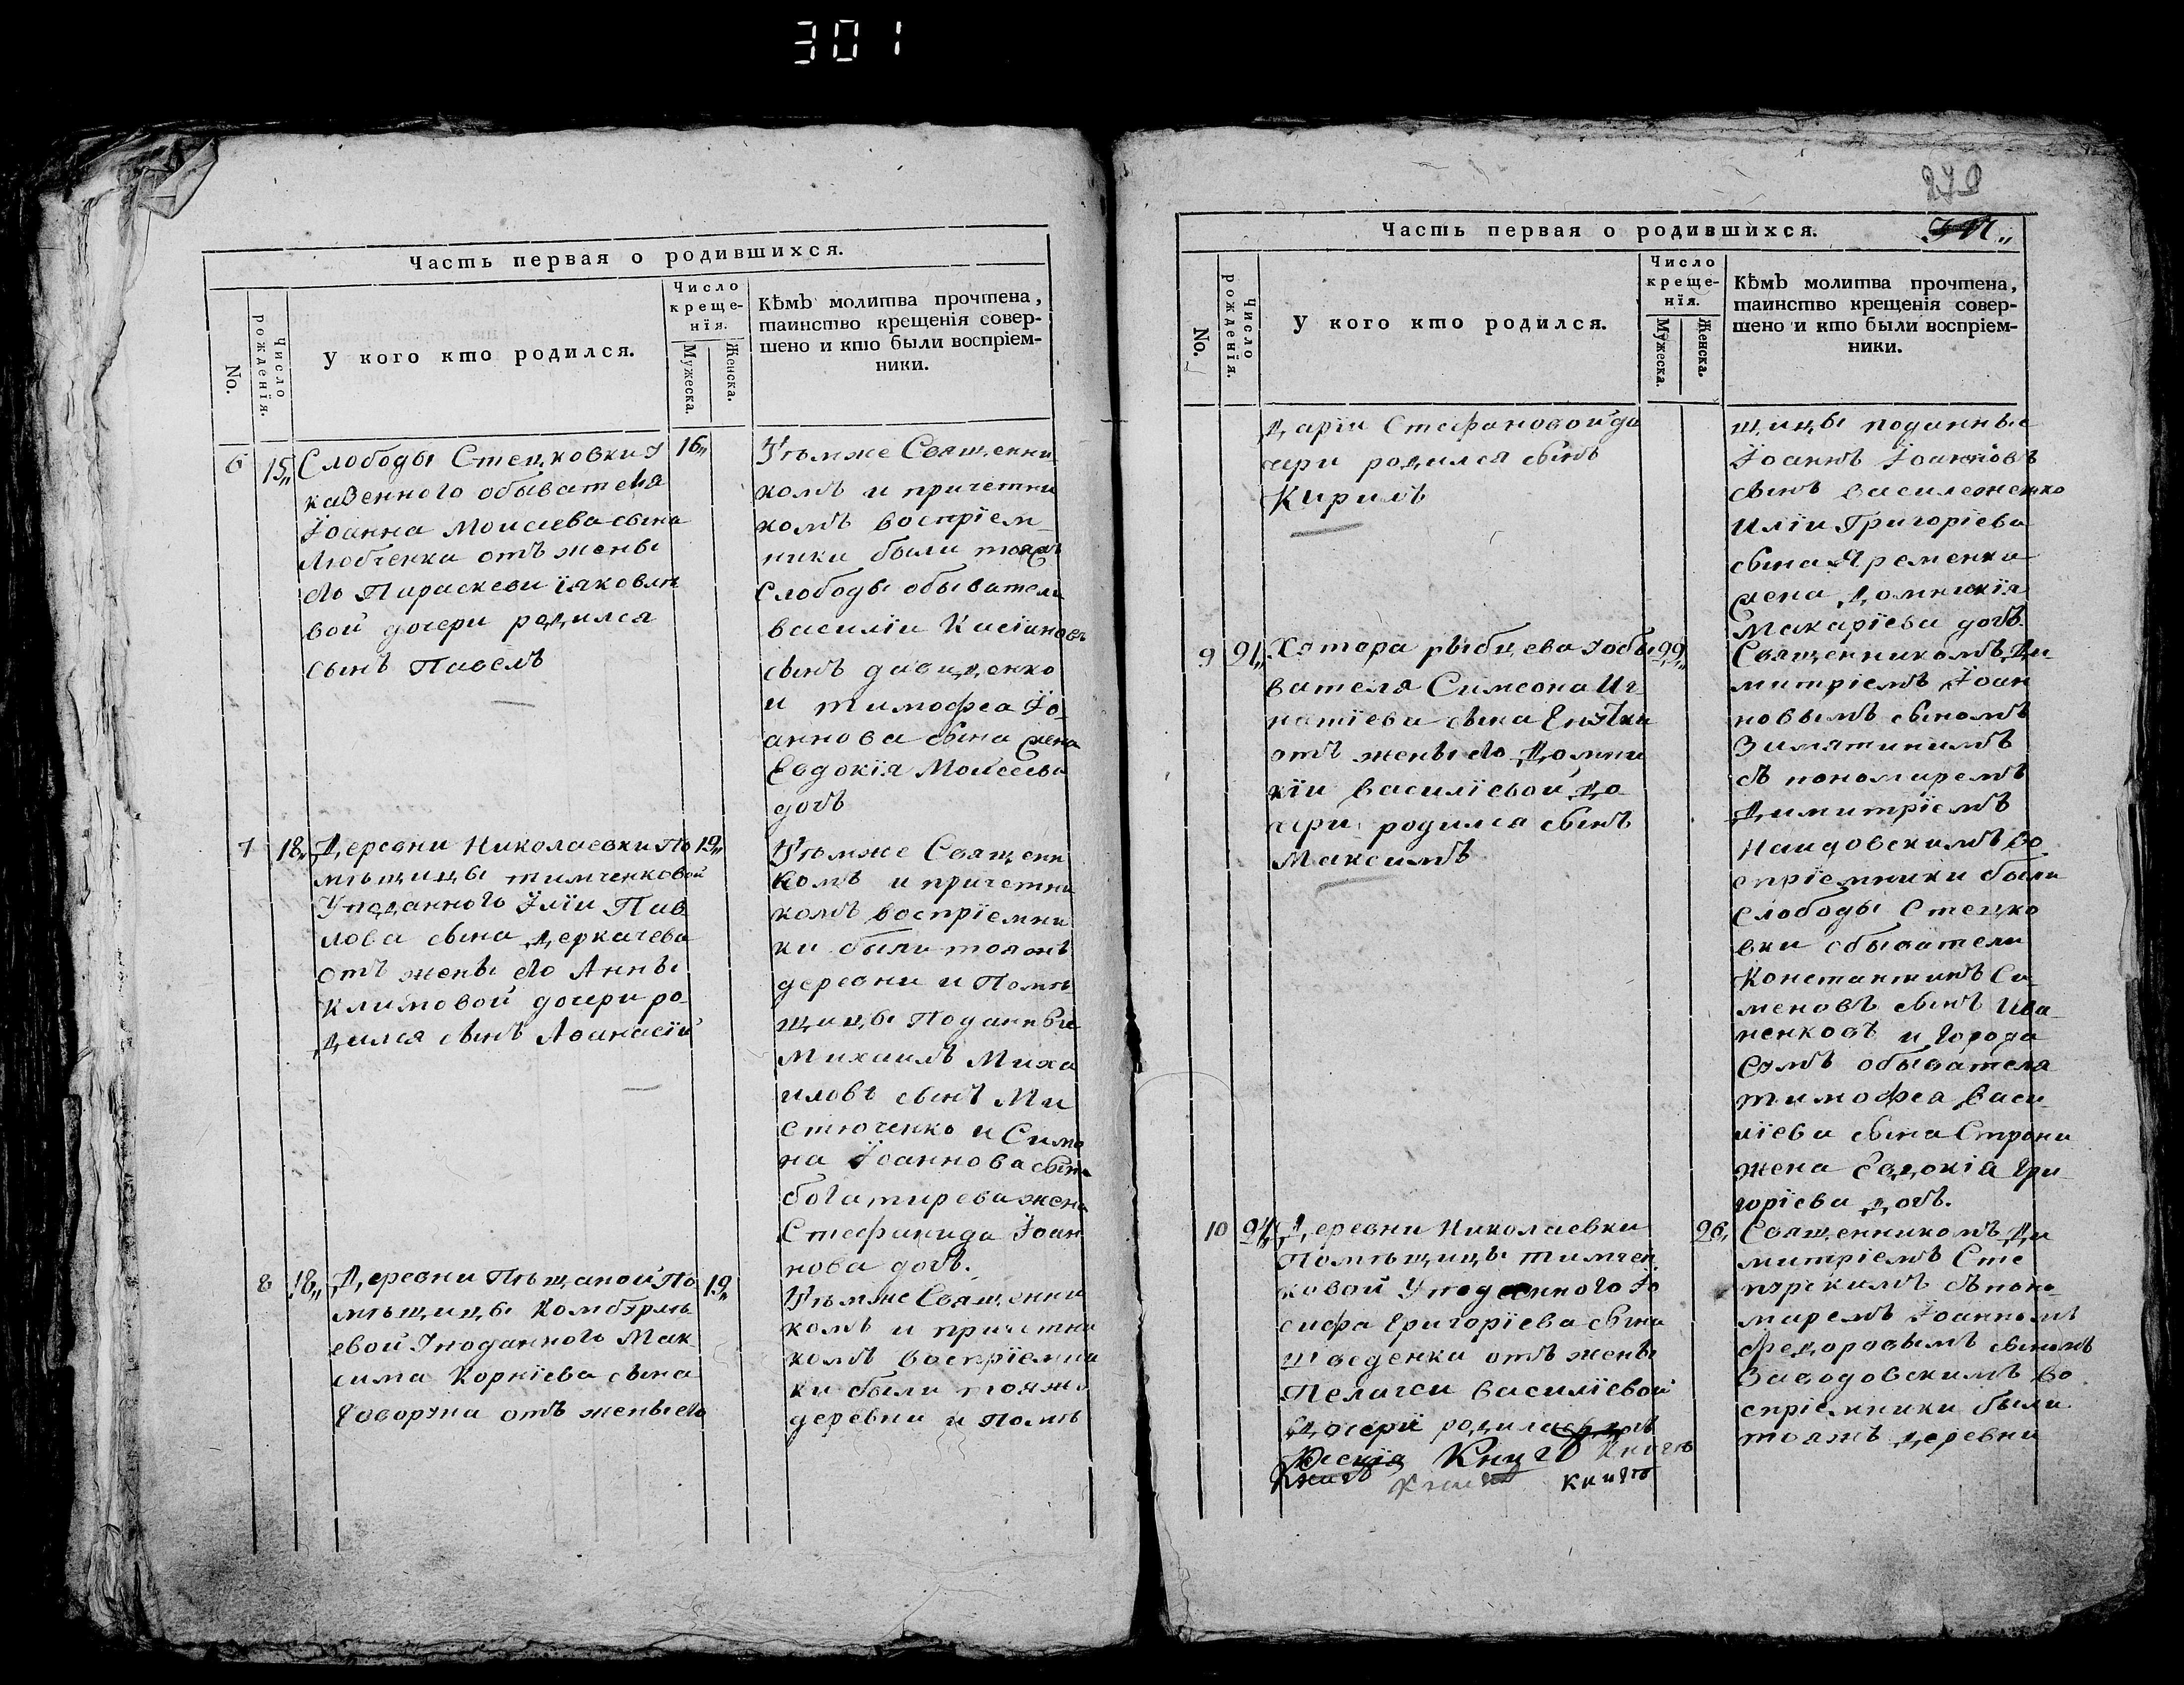 301
Часть первая о родившихся.
No.
Число рожденїя.
У кого кто родился.
Число креще-нїя.
Мужеска.
Женска.
Кѣмъ молитва прочтена,
таинство крещенія совер-
шено и кто были воспріем-
ники.
6 15„ Слободы Стецковки У 16„
казенного обывателя
Іоанна Моисеева сына
Любченка отъ жены
его Параскеви іяковле
вой дочери родился
сынъ Павелъ
Тѣмже Священни
комъ и причетни
комъ воспріем
ники были тояжъ
Слободы обыватели
василіи Касїановъ
сынъ давиденко
и тимофеа Іо-
аннова сына жена
Евдокїя Моисеева
дочь
7 18„ Деревни Николаевки По 19„
мѣщицы тимченковой
Уподанного Іліи Пав
лова сына деркачева
отъ жены его Анны
климовой дочери ро-
дился сынъ Аѳанасїй
Тѣмже Священи
комъ и причетни
комъ воспріемни
ки были тояжъ
деревни и Помѣ
щицы Поданные
Михаилъ Миха
иловъ сынъ Ми
стюченко и Симо
на Іоаннова сына
богатирева жена
Стефанида Іоан
нова дочь.
8 18„ Деревни Пѣщаной По 19„
мѣщицы Комбурлѣ
евой Уподанного Мак-
сима Корнїева сына
Говоруна отъ жены его
Тѣмже Священни
комъ и причетни
комъ воспріемни
ки были тояжъ
деревни и помѣ
279
Часть первая о родившихся.
No.
Число рожденїя.
У кого кто родился.
Число креще-нїя.
Мужеска.
Женска.
Кѣмъ молитва прочтена,
таинство крещенія совер-
шено и кто были воспріем-
ники.
Даріи Стефановой до
чери родился сынъ
Кирилъ
щицы поданные
Іоаннъ Іоанновъ
сынъ
Иліи Григоріева
сына Яременка
жена Домникїя
Макаріева дочь.
9 21„ Хутора рыбцева Уобы 22„
вателя Симеона Иг
натїева сына
отъ жены его Домни
кїи василїевой до
чери родился сынъ
Максимъ
Священникомъ Ди
митріемъ Іоан
новымъ сыномъ
Зимятинимъ
съ пономаремъ
Димитріемъ
во
спріемники были
Слободы Стецко
вки обыватели
Константинъ Си
меновъ сынъ Ива
ненковъ и Города
Сумъ обывателя
тимофеа Васи
ліева сына
жена Евдокія Гри-
горїева дочь.
10 24„ Деревни Николаевки 26„
Помѣщицы тимчен
ковой Уподанного Іо
сифа Григоріева сына
шведенки отъ жены
Пелагеи василїевой
Дочери родилась дочь
Книгѣ Книгѣ
Книгѣ Книга книгѣ
Священникомъ Ди
митріемъ Сте
пурскимъ съ поно
маремъ Іоанномъ
Федоровымъ сыномъ
Заводовскимъ во
спріемники были
тояжъ деревни